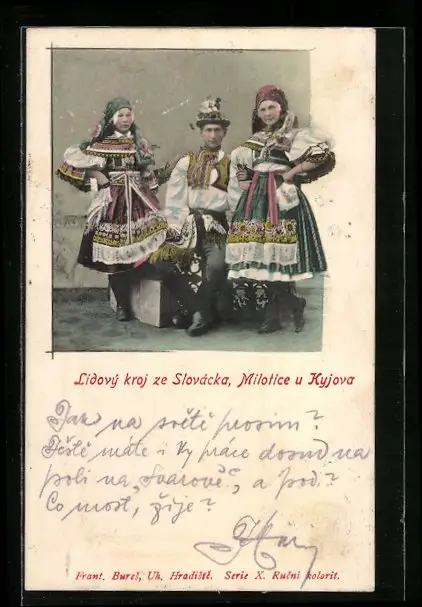 Lidový kroj ze Slovácka, Milotice u Kyjova
Jak na světě prosím?
Ještě máte i Vy práce dosud na
poli na „Svarově“, a pod.?
Co most, žije?
Frant. Bureš, Uh. Hradiště. Serie X. Ruční kolorit.